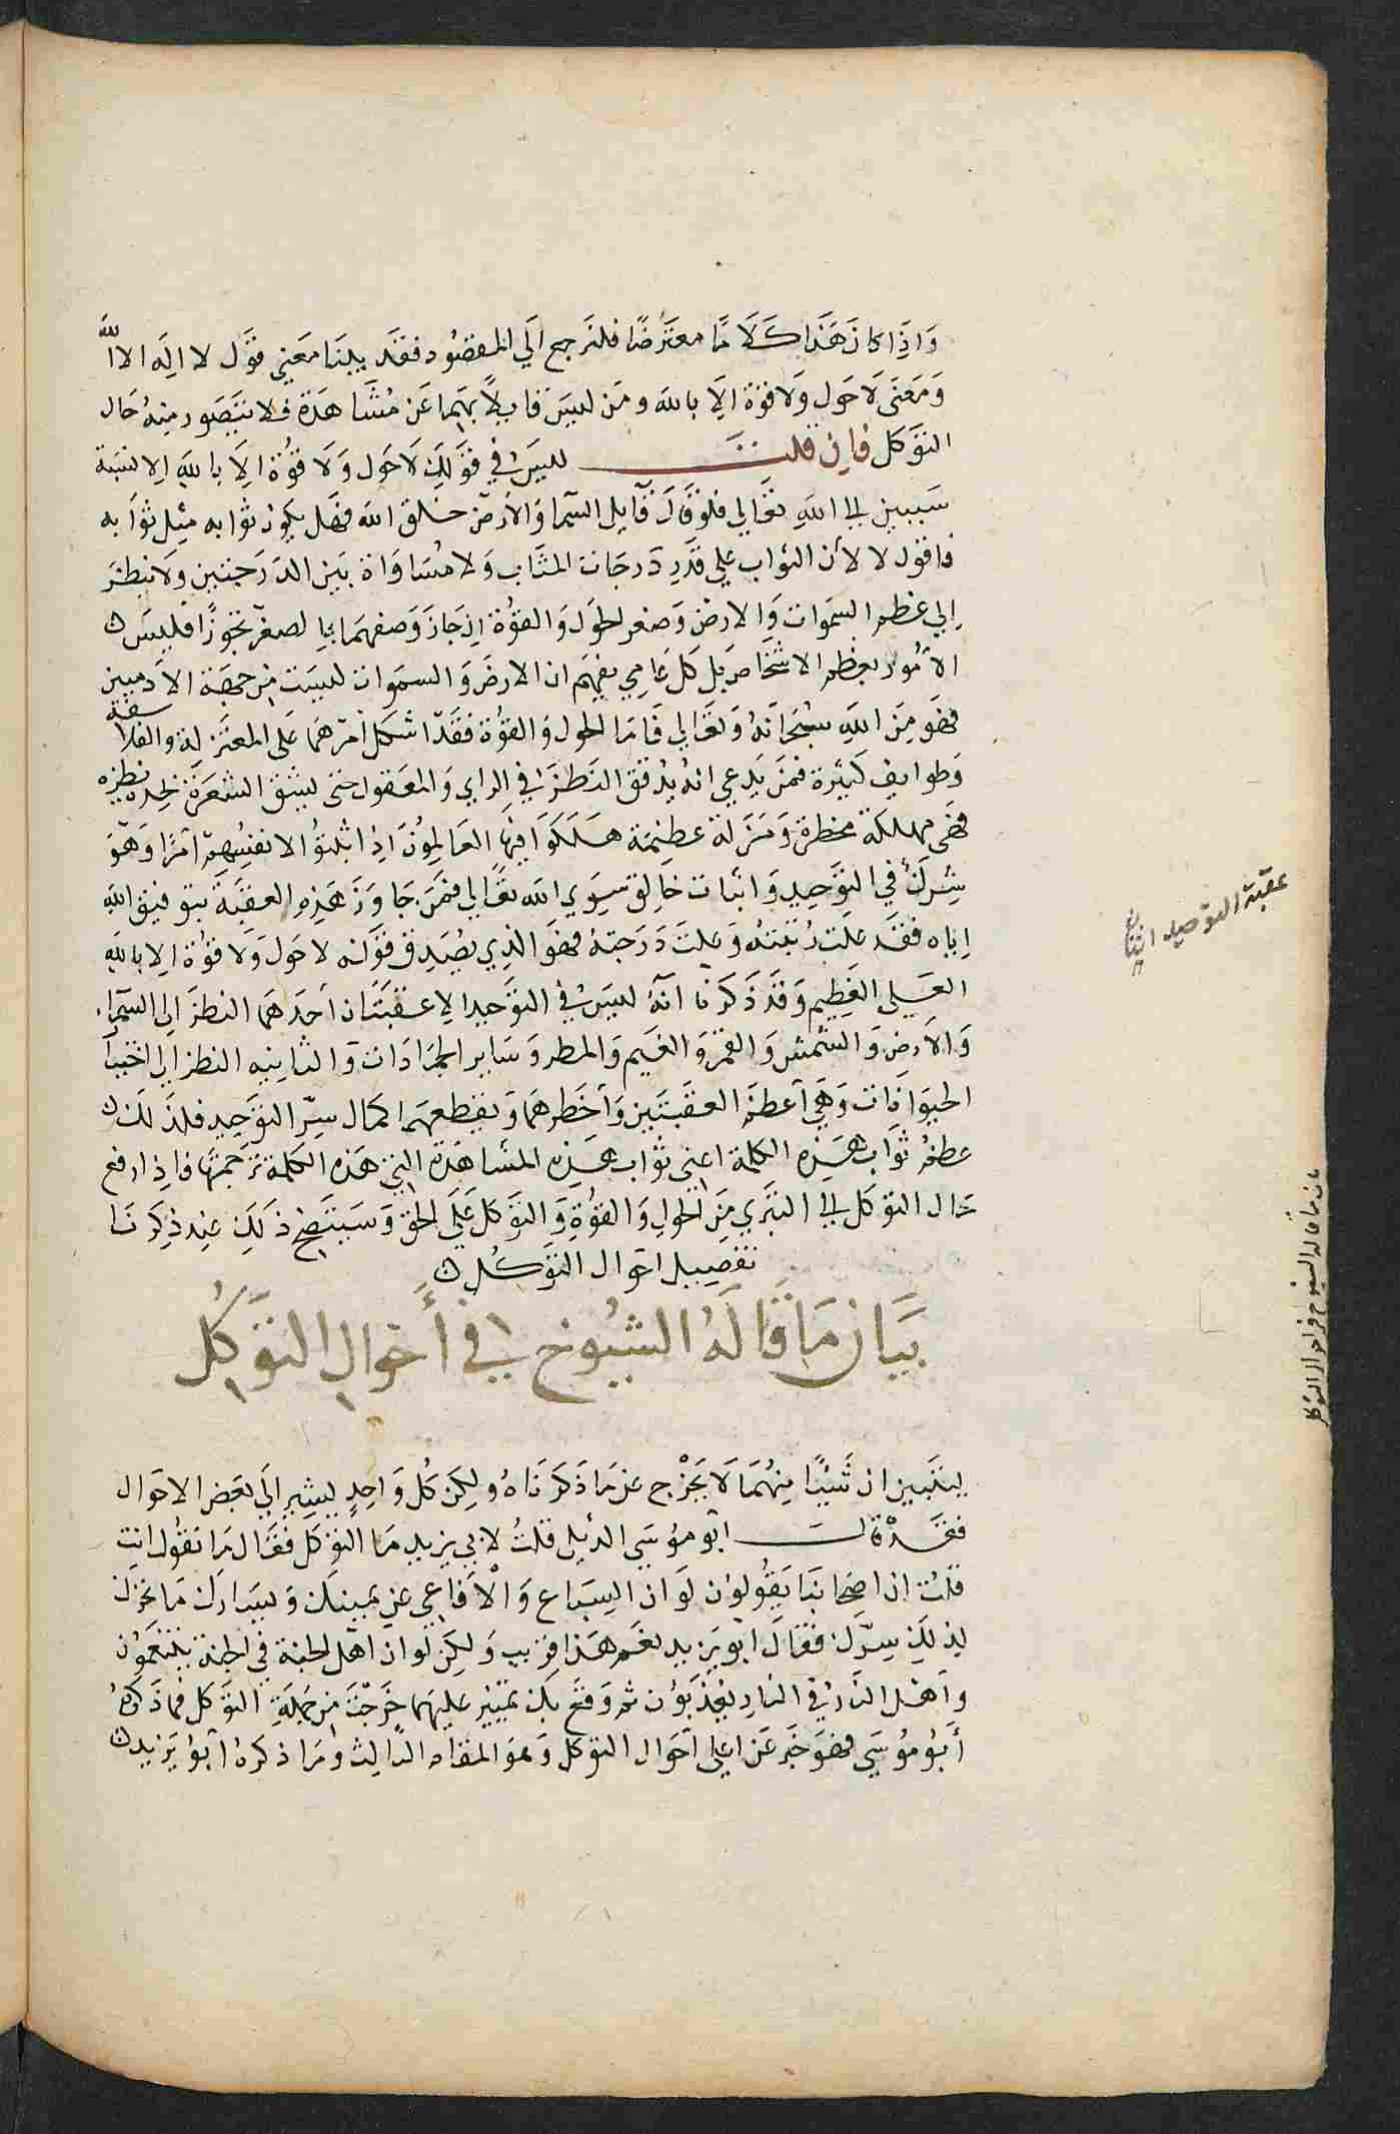 وَاِذَا كان هَذَا كَلَامًا معترضًا فلنرجع الَي المقصُود فقد بينا معنى قول لا اله الا الله
وَمَعنَى لَا حَول وَلَا قوة الا بالله ومَن ليسَ قايلاً بهما عَن مُشَاهَدة فلا يتصَور منهُ حَال
التوَكل فان قلت ليسَ في قولك لَا حَول وَلَا قوُة الا بالله الا نسبة
شيين الى الله تعَالي فلو قال قايل السّما وَالأرض خلق الله فهل يكون ثوابه مثل ثوابه
فاقول لا لأن الثواب علي قدر دَرجَات المثاب وَلا مُسَاوَاة بيَن الدَرَجتين ولا ينظر
اِلي عظم السموَات وَالارض وَصغر الحَول وَالقوُة اِن جَاز وَصفهمَا بالصغر تجوزًا فليسَت
الاُمُور بعظم الاشخاص بل كل عَامي يفهَم ان الارضَ وَالسموَات ليسَت مِن جهة الادَميين
فهو مِن الله سُبحَانهُ وَتعَالي فَامَا الحول وَالقوُة فقد اشكل امرهَما عَلى المعتزلة والفلاسفة
وَطوايف كثيرة ممن يَدعي انهُ يدقق النظر في الراي وَالمعقول حتى يشق الشعَرة بحدة نظره
فهى مهلكة مخطرة وَمزلة عظيمَة هَلَكوَا فيها العَالموُن اِذا ثبتوُا لانفسهم امرًا وَهوَ
شِرك في التوَحيد وَاثبات خالِق سِوي الله تعَالي فمن جَاوَز هَذِهِ العقبَة بتوفيق الله
اِياه فقد علت رُتبته وَعلتَ دَرَجتهُ فهوَ الذِي يصُدق قولهَ لا حَول ولا قوُة الا بالله
العَلي العَظِيم وَقد ذكرنا انهُ ليسَ في التوَحيد الا عقبتَان احَدهمَا النظر اِلى السّمآء
وَالارض وَالشمس وَالقمر وَالغيم وَالمطر وَسَاير الجمَادَات وَالثانيه النظر الي اختيار
الحيوَانات وَهَى اعظم العقبَتين وَاخطرهمَا وَبقطعهما كمال سرّ التوَحيد فلذَلك
عظم ثوَاب هَذِه الكلمة اعني ثوَاب هَذِه المشاهَدة التي هَذه الكلمة ترجمتها فاِذا رجع
حَال التوكل الى التبري مِن الحَول وَالقوُة وَالتوَكل عَلَى الحق وَسَيتضح ذَلك عند ذِكرنا
تفصيل احَوال التوَكل
بيَان مَا قَالَهُ الشيُوخ في أَحوال التوَكُل
ليتبين ان شَيئًا مِنهُمَا لَا يَخرْج عن مَا ذَكرنَاهُ ولكِن كُل وَاحِدٍ يشير الَي بعَض الاحَوال
فقد قال ابو موُسَي الدئيلي قلتُ لابي يزيد مَا التوَكل فقَال مَا تقوُل انت
قلت ان اصحَابنا يقوُلون لَو ان السِبَاع وَالأفاعي عن يمينك وَيسَارك مَا تحرك
لِذلك سِرّك فقال ابو يَزيد نعَم هَذا قريب وَلكِن لو ان اهَل الجنة في الجنة يتنعَمُون
وَاهَل النار في النار يعُذبَوُن ثم وَقع بك تمييز عليهما خَرجتَ مِن جملة التوَكل فما ذكرهُ
أَبوُ موُسَي فهوَ خبر عَن اعلي احَوال التوكل وَهو المقام الثالِث وَمَا ذكرهُ ابوُ يَزيد
عقبة التوحيد اثنتان
بيان ما قاله الشيوخ في احوال التوكل